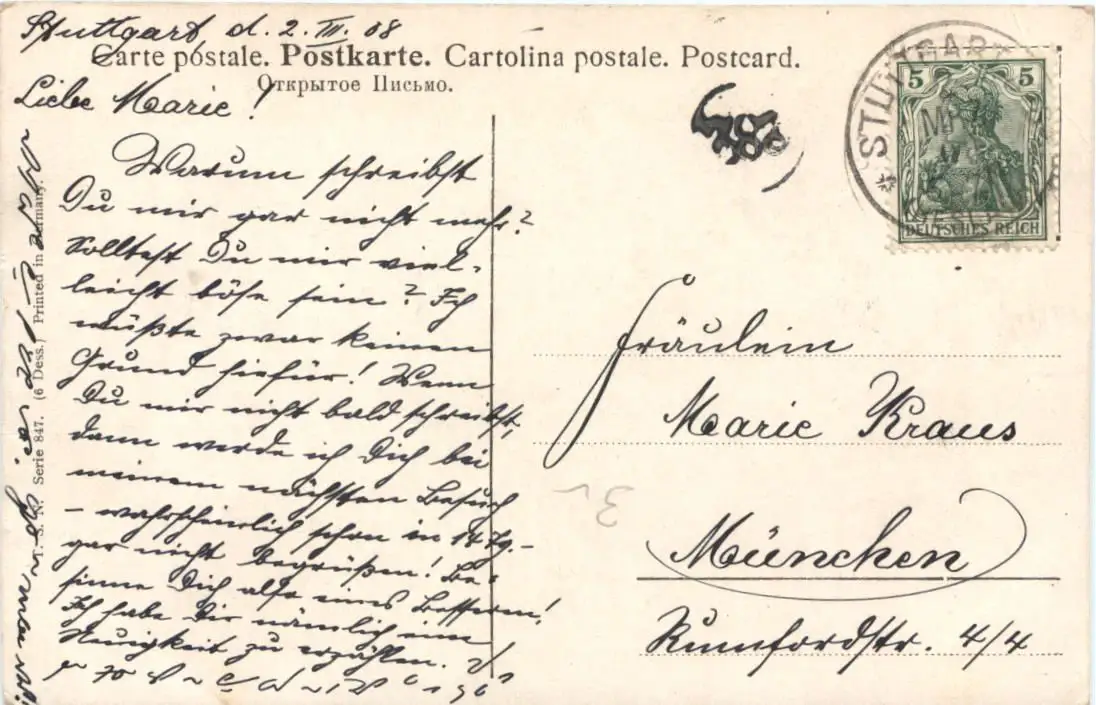 Stuttgart d. 2. III. 08
Carte postale. Postkarte. Cartolina postale. Postcard.
Открытое Письмо.
Liebe Marie!
Warum schreibst
Du mir gar nicht mehr?
Solltest Du mir viel-
leicht böse sein? Ich
müßte zwar keinen
Grund hiefür! Wenn
Du mir nicht bald schreibst,
dann werde ich Dich bei
meinem nächsten Besuch
- wahrscheinlich schon in 14 Tg. -
gar nicht begrüßen! Be-
sinne Dich also eines Besseren!
Ich habe Dir nämlich eine
Neuigkeit zu erzählen.
T. S. N. Serie 847. (6 Dess.) Printed in Germany.
STUTTGART
5 5
DEUTSCHES REICH
Fräulein
Marie Kraus
München
Rumfordstr. 4/4
3